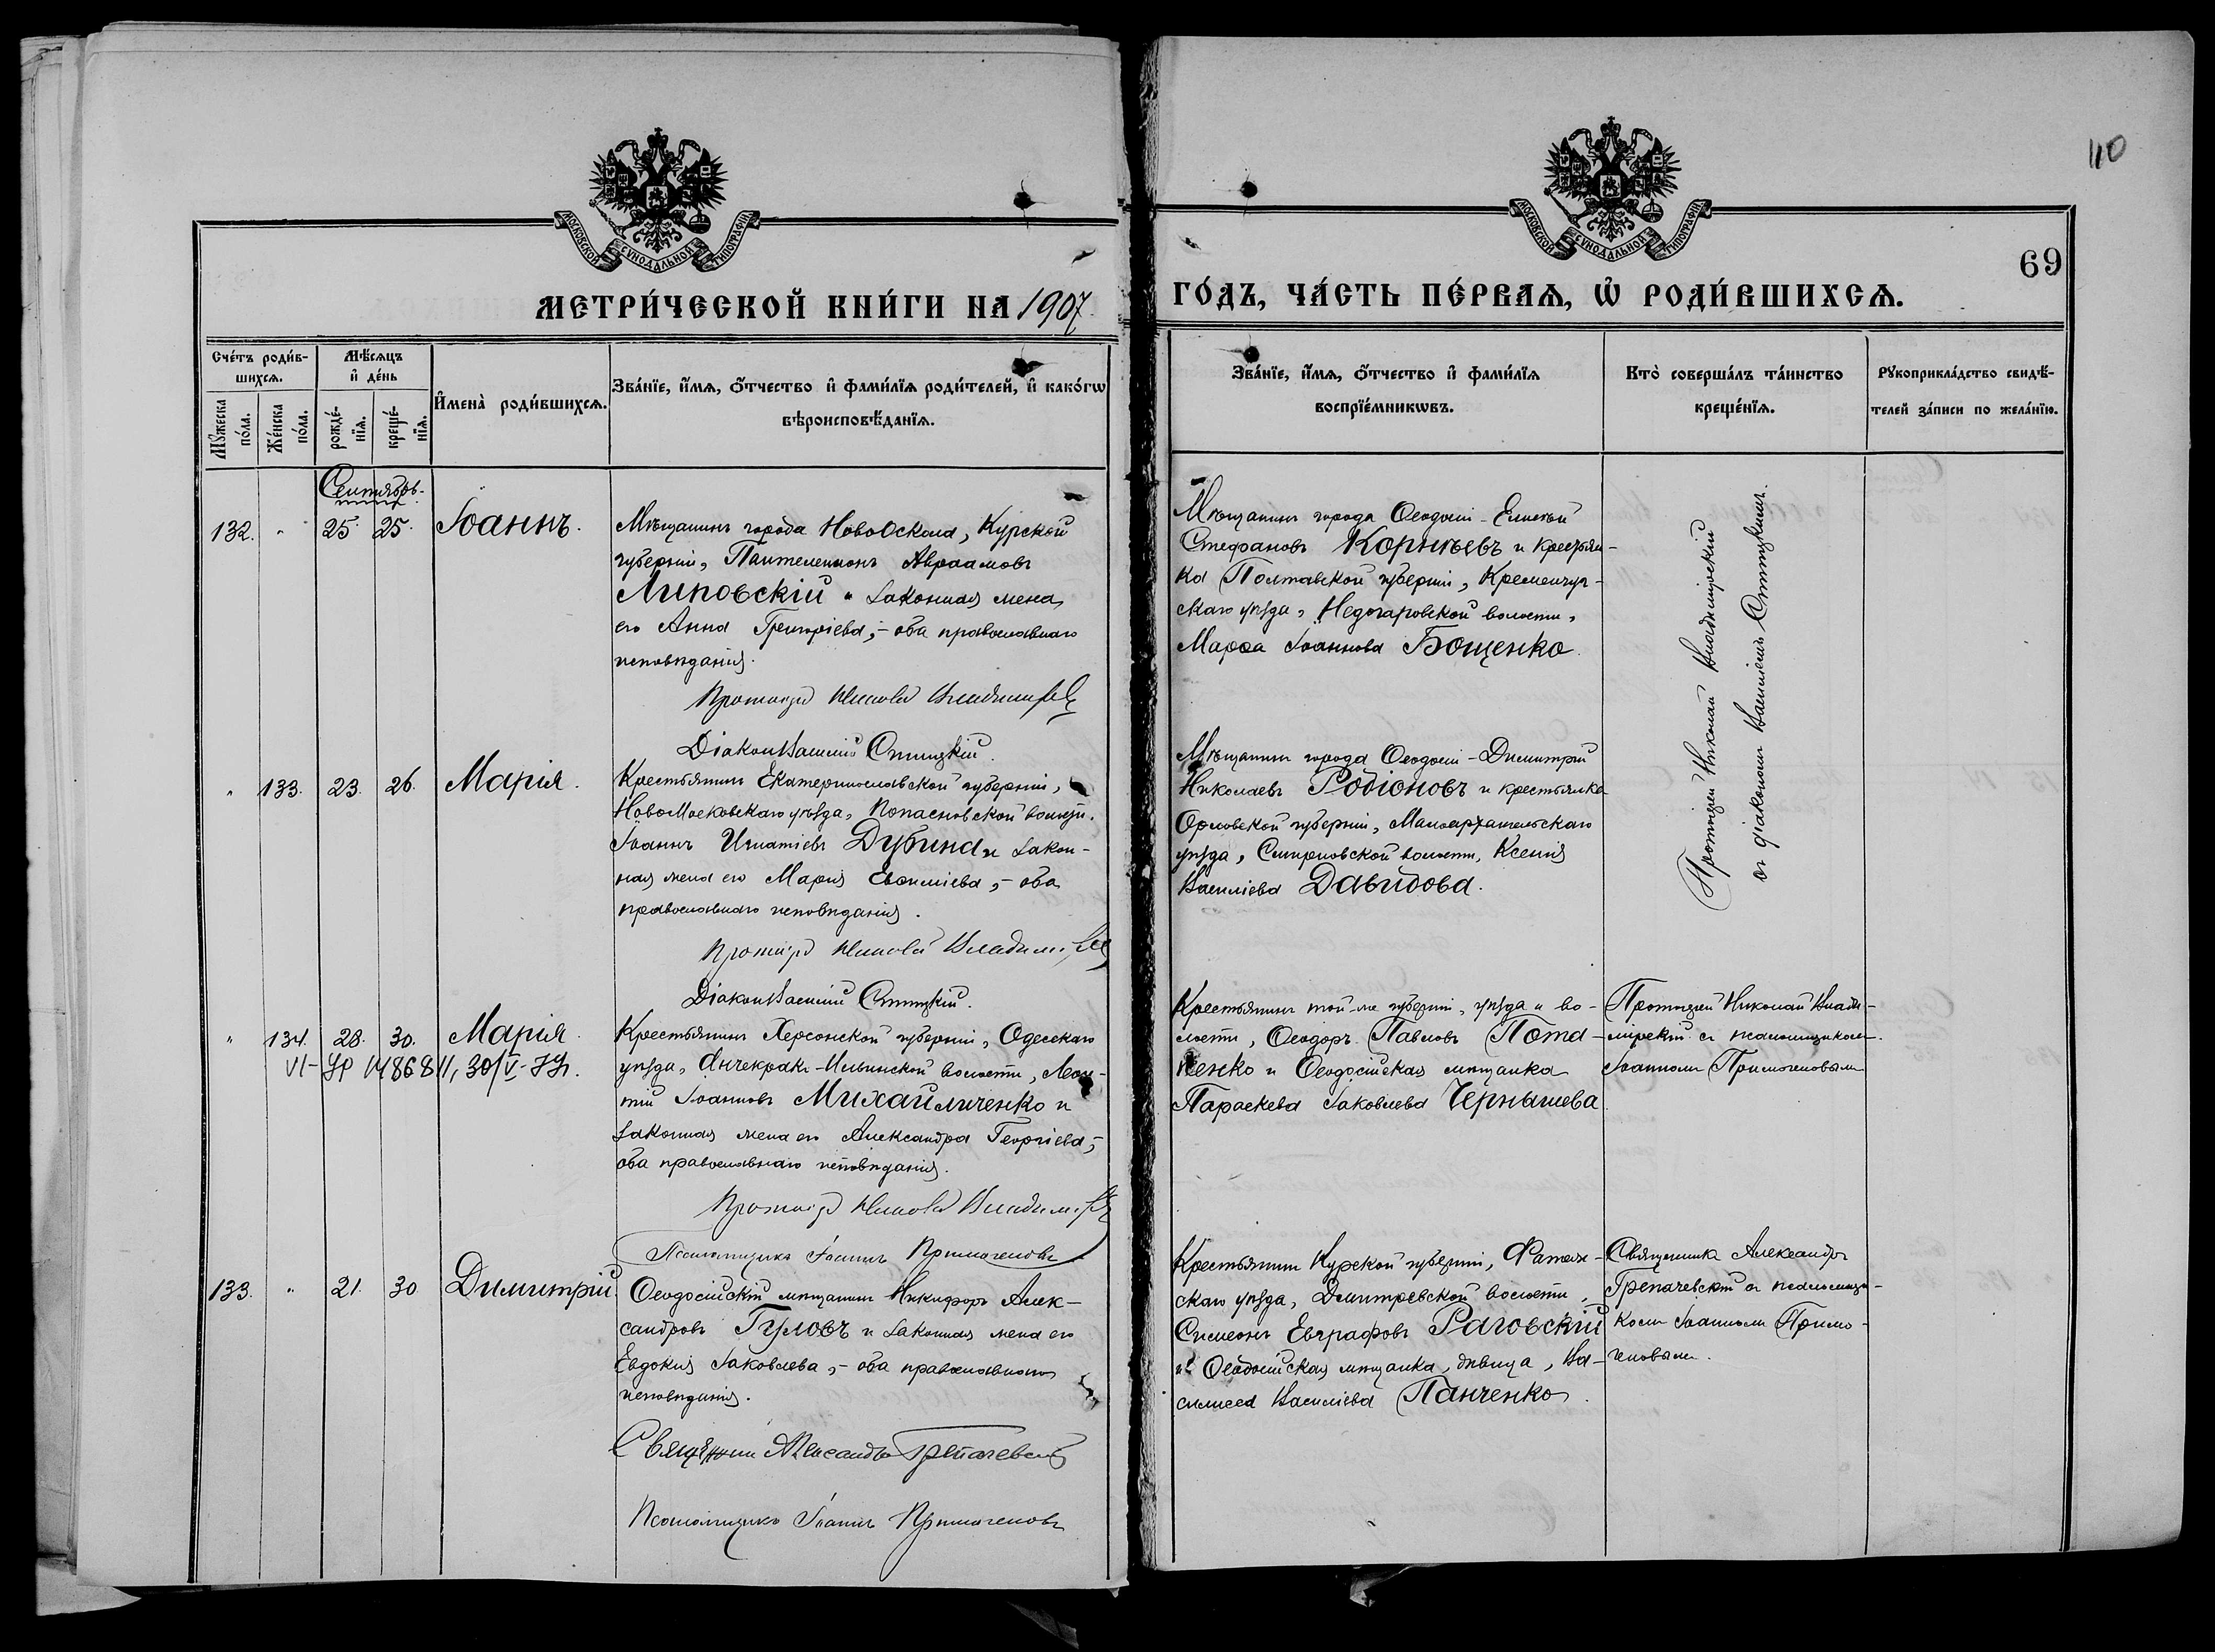 110
69
МОСКОВСКОЙ СѴНОДАЛЬНОЙ ТИПОГРАФІИ
МОСКОВСКОЙ СѴНОДАЛЬНОЙ ТИПОГРАФІИ
МЕТРИ́ЧЕСКОЙ КНИ́ГИ НА 1907.
ГО́ДЪ, ЧА́СТЬ ПЕ́РВАѦ, Ѡ҆ РОДИ́ВШИХСѦ.
Сче́тъ роди́в-
шихсѧ.
Мꙋ́жеска по́ла.
Же́нска по́ла.
Мѣ́сѧцъ
и҆ де́нь
рожде́-
нїѧ.
креще́-
нїѧ.
И҆мена̀ роди́вшихсѧ.
Зва́нїе, и҆́мѧ, ѻ҆́тчество и҆ фами́лїѧ роди́телей, и҆ како́гѡ
вѣроисповѣ́данїѧ.
Зва́нїе, и҆́мѧ, ѻ҆́тчество и҆ фами́лїѧ
воспрїе́мникѡвъ.
Кто̀ соверша́лъ та́инство
креще́нїѧ.
Рꙋкоприкла́дство свидѣ́-
телей за́писи по жела́нїю.
Сентябрь.
132. " 25. 25. Іоаннъ.
Мѣщанинъ города НовоОскола, Курской
губерніи, Пантелеимонъ Авраамовъ
Липовскій и законная жена
его Анна Григоріева, - оба православнаго
исповѣданія.
Протоіерей Николай Владимірскій
Діаконъ Василій
Мѣщанинъ города Ѳеодосіи - Елисей
Стефановъ Корнѣевъ и крестьян-
ка Полтавской губерніи, Кременчуг-
скаго уѣзда, Недогарковской волости,
Марѳа Іоаннова Бощенко.
Протоіерей Николай Владимірскій
съ діакономъ Василіемъ
" 133. 23. 26. Марія.
Крестьянинъ Екатеринославской губерніи,
НовоМосковскаго уѣзда, Попасновской волости.
Іоаннъ Игнатіевъ Дубина и закон-
ная жена его Марія Евѳиміева, - оба
православнаго исповѣданія.
Протоіерей Николай Владимірскій
Діаконъ Василій
Мѣщанинъ города Ѳеодосіи - Димитрій
Николаевъ Родіоновъ и крестьянка
Орловской губерніи, Малоархангельскаго
уѣзда, Смирновской волости, Ксенія
Василіева Давидова.
" 134. 28. 30. Марія.
VI-
Крестьянинъ Херсонской губерніи, Одесскаго
уѣзда, Анчекракъ-Ильинской волости, Леон-
тій Іоанновъ Михайличенко и
законная жена его Александра Георгіева, -
оба православнаго исповѣданія.
Протоіерей Николай Владимірскій
Псаломщикъ Іоаннъ Примаченовъ
Крестьянинъ той-же губерніи, уѣзда и во-
лости, Ѳеодоръ Павловъ Пота-
пенко и Ѳеодосійская мѣщанка
Параскева Іаковлева Чернышева.
Протоіерей Николай Влади-
мірскій съ псаломщикомъ
Іоанномъ Примаченовымъ
133. " 21. 30. Димитрій.
Ѳеодосійскій мѣщанинъ Никифоръ Алек-
сандровъ Гуловъ и законная жена его
Евдокія Іаковлева, - оба православнаго
исповѣданія.
Священникъ Александръ
Псаломщикъ Іоаннъ Примаченовъ
Крестьянинъ Курской губерніи, Фатеж-
скаго уѣзда, Дмитревской волости,
Симеонъ Евграфовъ Раговскій
и Ѳеодосійская мѣщанка, дѣвица, Ва-
силисса Василіева Панченко.
Священникъ Александръ
съ псаломщи-
комъ Іоанномъ Прима-
ченовымъ.